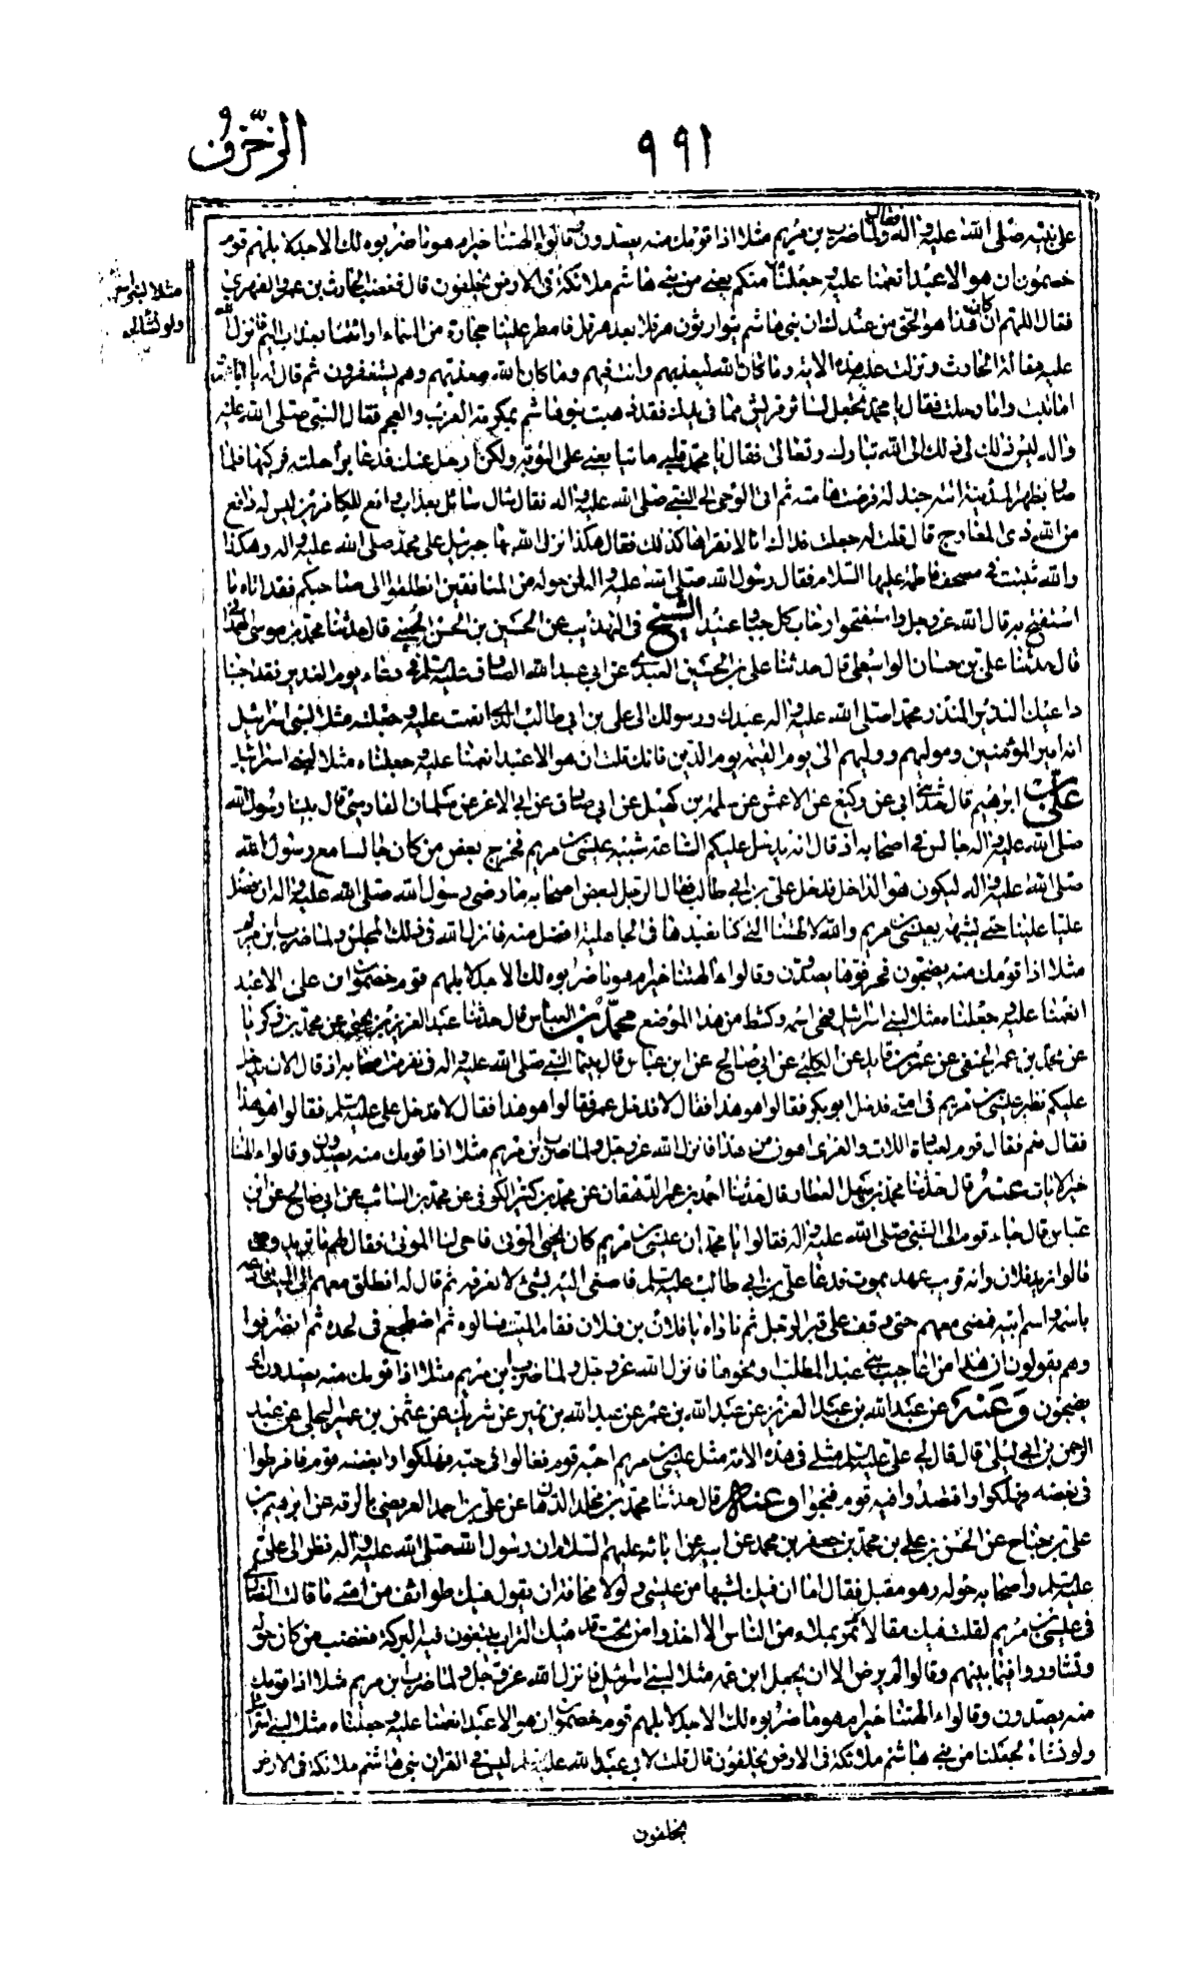 الزخرف
٩٩١
على نبيه صلى الله عليه واله فقال ولما ضرب بن مريم مثلا اذا قومك منه يصدون وقالوا الهتنا خير ام هو ما ضربوه لك الا جدلا بل هم قوم
خصمون ان هو الا عبد انعمنا عليه وجعلناه منكم يعني من بني هاشم ملائكة في الارض يخلفون قال فغضب الحارث بن عمرو الفهري
مثلا لبني
ولو نشاء لجعلنا
فقال اللهم ان كان هذا هو الحق من عندك ان بني هاشم يتوارثون هرقلا بعد هرقل فامطر علينا حجارة من السماء او ائتنا بعذاب اليم فانزل الله
عليه مقالة الحارث ونزلت عليه هذه الاية وما كان الله ليعذبهم وانت فيهم وما كان الله معذبهم وهم يستغفرون ثم قال له يا
اما تبت واما رحلت فقال يا محمد تجعل لسائر قريش مما في يدك فقد ذهبت بنو هاشم بمكرمة العرب والعجم فقال النبي صلى الله عليه
واله ليس ذلك الي ذلك الى الله تبارك وتعالى فقال يا محمد قلبي ما يتابعني على التوبة ولكن ارحل عنك فدعا براحلته فركبها فلما
صار بظهر المدينة اتته جندلة فرضت هامته ثم اتى الوحي الى النبي صلى الله عليه واله فقال سال سائل بعذاب واقع للكافرين ليس له دافع
من الله ذي المعارج قال قلت له جعلت فداك انا لا نقراها كذلك فقال هكذا نزل الله بها جبرئيل على محمد صلى الله عليه واله وهكذا
والله مثبت في مصحف فاطمة عليها السلام فقال رسول الله صلى الله عليه واله لمن حوله من المنافقين انطلقوا الى صاحبكم فقد اتاه ما
استفتح به قال الله عز وجل واستفتحوا وخاب كل جبار عنيد الشيخ في التهذيب عن الحسين بن الحسن الحسيني قال حدثنا محمد بن موسى الهمداني
قال حدثنا علي بن حسان الواسطي قال حدثنا علي بن الحسين العبدي عن ابي عبد الله الصادق عليه السلام في دعاء يوم الغدير فقد اجبنا
داعيك النذير المنذر محمدا صلى الله عليه واله عبدك ورسولك الى علي بن ابي طالب الذي انعمت عليه وجعلته مثلا لبني اسرائيل
انه امير المؤمنين ومولاهم ووليهم الى يوم القيمة يوم الدين فانك قلت ان هو الا عبد انعمنا عليه وجعلناه مثلا لبني اسرائيل
علي بن ابراهيم قال حدثني ابي عن وكيع عن الاعمش عن سلمة بن كهيل عن ابي صادق عن ابي الاغر عن سلمان الفارسي قال بينا رسول الله
صلى الله عليه واله جالس في اصحابه اذ قال انه يدخل عليكم الساعة شبيه عيسى بن مريم فخرج بعض من كان جالسا مع رسول الله
صلى الله عليه واله ليكون هو الداخل فدخل علي بن ابي طالب فقال الرجل لبعض اصحابه ما رضي رسول الله صلى الله عليه واله ان فضل
عليا علينا حتى يشبهه بعيسى بن مريم والله لالهتنا التي كنا نعبدها في الجاهلية افضل منه فانزل الله في ذلك المجلس ولما ضرب ابن مريم
مثلا اذا قومك منه يضجون فحرفوها يصدون وقالوا ءالهتنا خير ام هو ما ضربوه لك الا جدلا بل هم قوم خصمون ان علي الا عبد
انعمنا عليه وجعلناه مثلا لبني اسرائيل فمحي اسمه وكشط من هذا الموضع محمد بن العباس قال حدثنا عبد العزيز بن يحيى عن محمد بن زكريا
عن محمد بن عمر الحنفي عن عمر بن قايد عن الكلبي عن ابي صالح عن ابن عباس قال بينما النبي صلى الله عليه واله في نفر من اصحابه اذ قال الان يدخل
عليكم نظير عيسى بن مريم في امتي فدخل ابو بكر فقالوا هو هذا فقال لا فدخل عمر فقالوا هو هذا فقال لا فدخل علي عليه السلم فقالوا هو هذا
فقال نعم فقال قوم لعبادة اللات والعزى اهون من هذا فانزل الله عز وجل ولما ضرب ابن مريم مثلا اذا قومك منه يصدون وقالوا ءالهتنا
خير الايات وعنه قال حدثنا محمد بن سهل العطار قال حدثنا احمد بن عمر الدهقان عن محمد بن كثير الكوفي عن محمد بن السائب عن ابي صالح عن ابن
عباس قال جاء قوم الى النبي صلى الله عليه واله فقالوا يا محمد ان عيسى بن مريم كان يحيي الموتى فاحي لنا الموتى فقال لهم من تريدون
قالوا نريد فلان وانه قريب عهد بموت فدعا علي بن ابي طالب عليه السلم فاصغى اليه بشيء لا نعرفه ثم قال له انطلق معهم الى الميت فادعه
باسمه واسم ابيه فمضى معهم حتى وقف على قبر الرجل ثم ناداه يا فلان بن فلان فقام الميت فسالوه ثم اضطجع في لحده ثم انصرفوا
وهم يقولون ان هذا من اعاجيب بني عبد المطلب او نحوها فانزل الله عز وجل ولما ضرب ابن مريم مثلا اذا قومك منه يصدون اي
يضجون وعنه عن عبد الله بن عبد العزيز عن عبد الله بن عمر عن عبد الله بن نمير عن شريك عن عثمن بن عمير البجلي عن عبد
الرحمن بن ابي ليلى قال قال لي علي عليه السلم مثلي في هذه الامة مثل عيسى بن مريم احبه قوم فغالوا في حبه فهلكوا وابغضه قوم فافرطوا
في بغضه فهلكوا واقتصد فيه قوم فنجوا وعنه قال حدثنا محمد بن مخلد الدهان عن علي بن احمد العريضي بالرقة عن ابراهيم بن
علي بن جناح عن الحسن بن علي بن محمد بن جعفر بن محمد عن ابيه عن ابائه عليهم السلام ان رسول الله صلى الله عليه واله نظر الى علي
عليه السلم واصحابه حوله وهو مقبل فقال اما ان فيك لشبها من عيسى ولولا مخافة ان يقول فيك طوائف من امتي ما قالت النصارى
في عيسى بن مريم لقلت فيك مقالا لا تمر بملاء من الناس الا اخذوا من تحت قدميك التراب يبغون فيه البركة فغضب من كان حوله
وتشاوروا فيما بينهم وقالوا لم يرض الا ان يجعل ابن عمه مثلا لبني اسرائيل فانزل الله عز وجل ولما ضرب ابن مريم مثلا اذا قومك
منه يصدون وقالوا ءالهتنا خير ام هو ما ضربوه لك الا جدلا بل هم قوم خصمون ان هو الا عبد انعمنا عليه وجعلناه مثلا لبني اسرائيل
ولو نشاء لجعلنا من بني هاشم ملائكة في الارض يخلفون قال قلت لابي عبد الله عليه السلم ليس في القران بني هاشم ملائكة في الارض
يخلفون